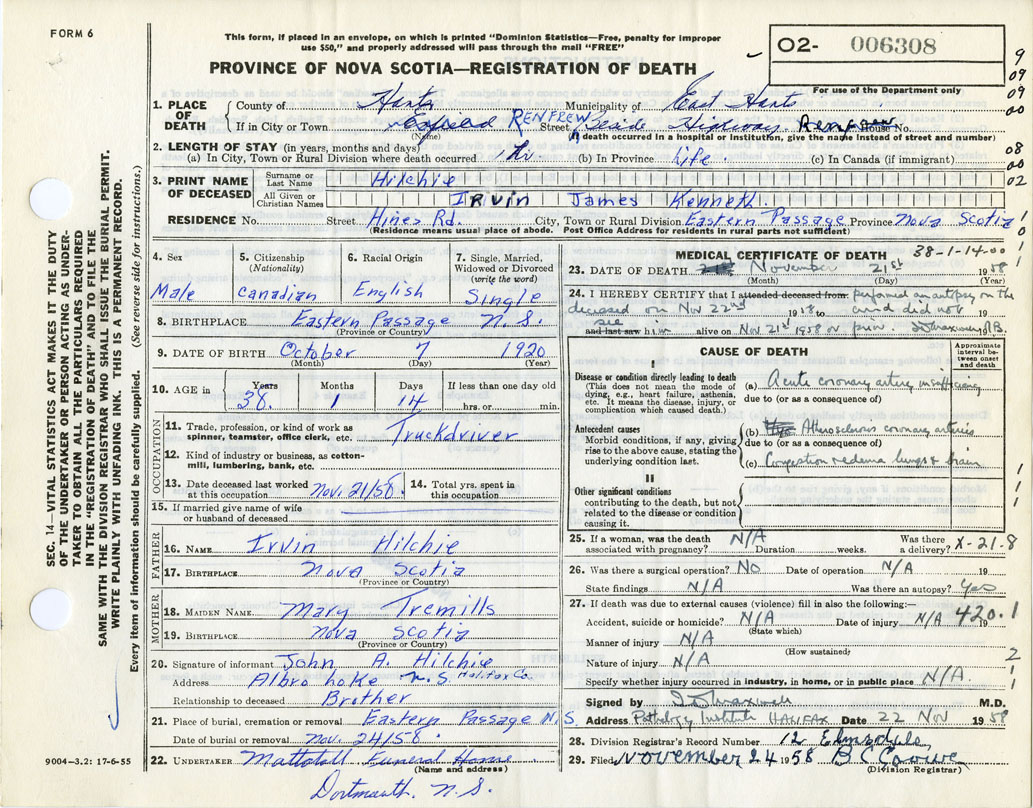 FORM 6
This form, if placed in an envelope, on which is printed "Dominion Statistics—Free, penalty for improper
use $50," and properly addressed will pass through the mail "FREE"
O2- 006308
PROVINCE OF NOVA SCOTIA—REGISTRATION OF DEATH
For use of the Department only
9
09
09
00
08
00
02
1. PLACE OF DEATH
County of Hants Municipality of East Hants
If in City or Town RENFREW Street Beside Highway, Renfrew House No.
(Name) (If death occurred in a hospital or institution, give the name instead of street and number)
2. LENGTH OF STAY (in years, months and days)
(a) In City, Town or Rural Division where death occurred 1 hr. (b) In Province Life (c) In Canada (if immigrant)
3. PRINT NAME OF DECEASED
Surname or Last Name Hilchie
All Given or Christian Names Irvin James Kenneth
RESIDENCE No. Street Hines Rd. City, Town or Rural Division Eastern Passage Province Nova Scotia
(Residence means usual place of abode. Post Office Address for residents in rural parts not sufficient)
SEC. 14—VITAL STATISTICS ACT MAKES IT THE DUTY
OF THE UNDERTAKER OR PERSON ACTING AS UNDER-
TAKER TO OBTAIN ALL THE PARTICULARS REQUIRED
IN THE "REGISTRATION OF DEATH" AND TO FILE THE
SAME WITH THE DIVISION REGISTRAR WHO SHALL ISSUE THE BURIAL PERMIT.
WRITE PLAINLY WITH UNFADING INK. THIS IS A PERMANENT RECORD.
Every item of information should be carefully supplied. (See reverse side for instructions.)
4. Sex Male
5. Citizenship (Nationality) Canadian
6. Racial Origin English
7. Single, Married, Widowed or Divorced (write the word) Single
8. BIRTHPLACE Eastern Passage N.S.
(Province or Country)
9. DATE OF BIRTH October 7 1920
(Month) (Day) (Year)
10. AGE in Years 38. Months 1 Days 14 If less than one day old hrs. or min.
OCCUPATION
11. Trade, profession, or kind of work as spinner, teamster, office clerk, etc. Truckdriver
12. Kind of industry or business, as cotton-mill, lumbering, bank, etc.
13. Date deceased last worked at this occupation Nov. 21/58.
14. Total yrs. spent in this occupation
15. If married give name of wife or husband of deceased
FATHER
16. NAME Irvin Hilchie
17. BIRTHPLACE Nova Scotia
(Province or Country)
MOTHER
18. MAIDEN NAME Mary Tremills
19. BIRTHPLACE Nova Scotia
(Province or Country)
20. Signature of informant John A. Hilchie
Address Albro Lake N.S. Halifax Co.
Relationship to deceased Brother
21. Place of burial, cremation or removal Eastern Passage N.S.
Date of burial or removal Nov. 24/58.
22. UNDERTAKER Mattatall Funeral Home
(Name and address)
Dartmouth, N.S.
9004—3.2: 17-6-55
MEDICAL CERTIFICATE OF DEATH 38-1-14-00
23. DATE OF DEATH November 21st 1958
(Month) (Day) (Year)
24. I HEREBY CERTIFY that I attended deceased from: performed an autopsy on the
deceased on Nov 22nd 1958 to and did not 19
see
and last saw him alive on Nov 21st 1958 or prior.
CAUSE OF DEATH
Approximate interval between onset and death
I
Disease or condition directly leading to death
(This does not mean the mode of dying, e.g., heart failure, asthenia, etc. It means the disease, injury, or complication which caused death.)
(a) Acute coronary artery insufficiency
due to (or as a consequence of)
Antecedent causes
Morbid conditions, if any, giving rise to the above cause, stating the underlying condition last.
(b) Atherosclerosis coronary arteries
due to (or as a consequence of)
(c) Congestion & edema lungs & brain
II
Other significant conditions
contributing to the death, but not related to the disease or condition causing it.
25. If a woman, was the death associated with pregnancy? N/A Duration weeks. Was there a delivery? X-21-8
26. Was there a surgical operation? No Date of operation N/A 19
State findings N/A Was there an autopsy? Yes
27. If death was due to external causes (violence) fill in also the following:—
Accident, suicide or homicide? N/A Date of injury N/A 19 420.1
(State which)
Manner of injury N/A
(How sustained)
Nature of injury N/A
Specify whether injury occurred in industry, in home, or in public place N/A.
Signed by M.D.
Address Pathology Institute HALIFAX Date 22 Nov 1958
28. Division Registrar's Record Number 12 Elmsdale
29. Filed November 24 1958
(Division Registrar)